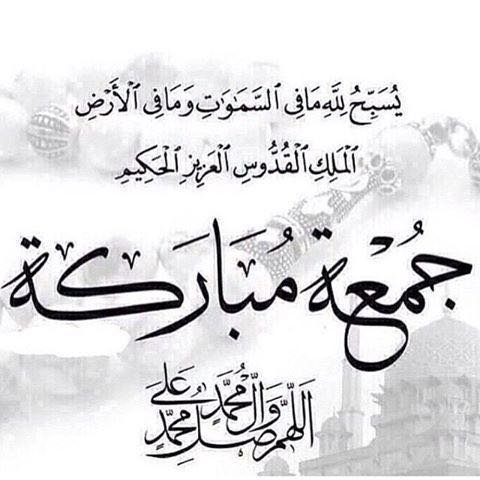 يُسَبِّحُ لِلَّهِ مَا فِي ٱلسَّمَـٰوَٰتِ وَمَا فِي ٱلْأَرْضِ
ٱلْمَلِكِ ٱلْقُدُّوسِ ٱلْعَزِيزِ ٱلْحَكِيمِ
جُمْعَة مُبَارَكَة
اَللّٰهُمَّ صَلِّ عَلَى مُحَمَّدٍ وَآلِ مُحَمَّدٍ